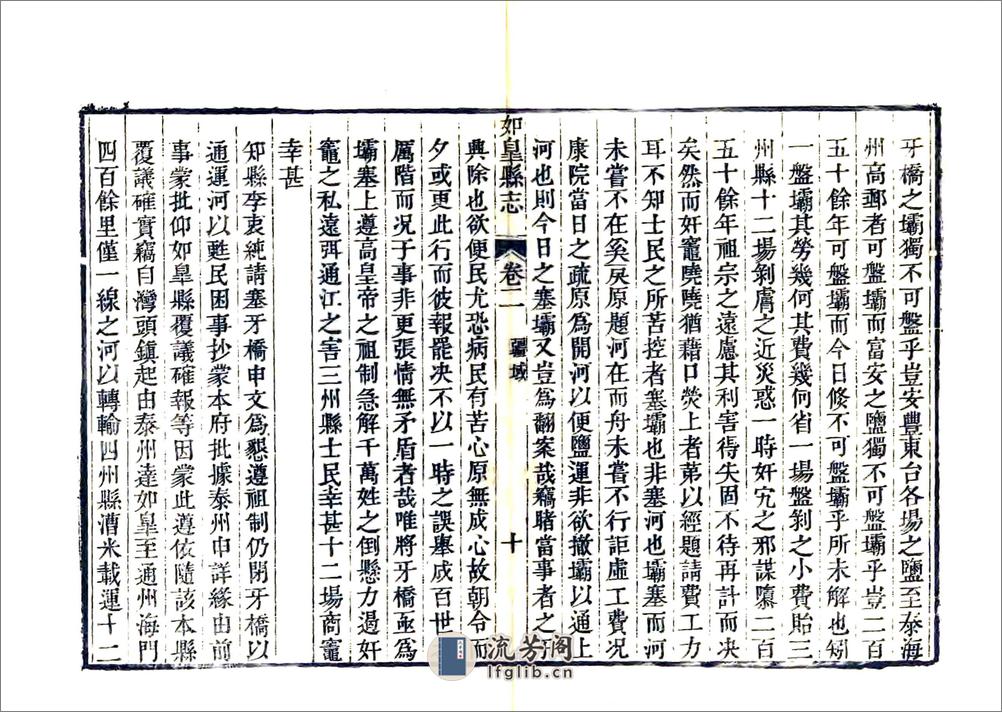 牙橋之壩獨不可盤乎豈安豐東台各場之鹽至泰海
州高郵者可盤壩而富安之鹽獨不可盤壩乎豈二百
五十餘年可盤壩而今日倏不可盤壩乎所未解也矧
一盤壩其勞幾何其費幾何省一場盤剝之小費貽三
州縣十二場剝膚之近災惑一時奸宄之邪謀隳二百
五十餘年祖宗之遠慮其利害得失固不待再計而決
矣然而奸竈嘵嘵猶藉口熒上者第以經題請費工力
耳不知士民之所苦控者塞壩也非塞河也壩塞而河
未嘗不在奚戾原題河在而舟未嘗不行詎虛工費況
康院當日之疏原為開河以便鹽運非欲撤壩以通上
河也則今日之塞壩又豈為翻案哉竊睹當事者之
如皐縣志
卷二
疆域
十
興除也欲便民尤恐病民有苦心原無成心故朝令而
夕或更此行而彼報罷決不以一時之誤舉成百世
厲階而況于事非更張情無矛盾者哉唯將牙橋亟為
壩塞上遵高皇帝之祖制急解千萬姓之倒懸力過奸
竈之私遠弭通江之害三州縣士民幸甚十二場商竈
幸甚
知縣李衷純請塞牙橋申文為懇遵祖制仍閉牙橋以
通運河以甦民困事抄蒙本府批據泰州申詳緣由前
事蒙批仰如皐縣覆議確報等因蒙此遵依隨該本縣
覆議確實竊自灣頭鎮起由泰州達如皐至通州海門
四百餘里僅一線之河以轉輸四州縣漕米載運十二
流芳阁
lfglib.cn